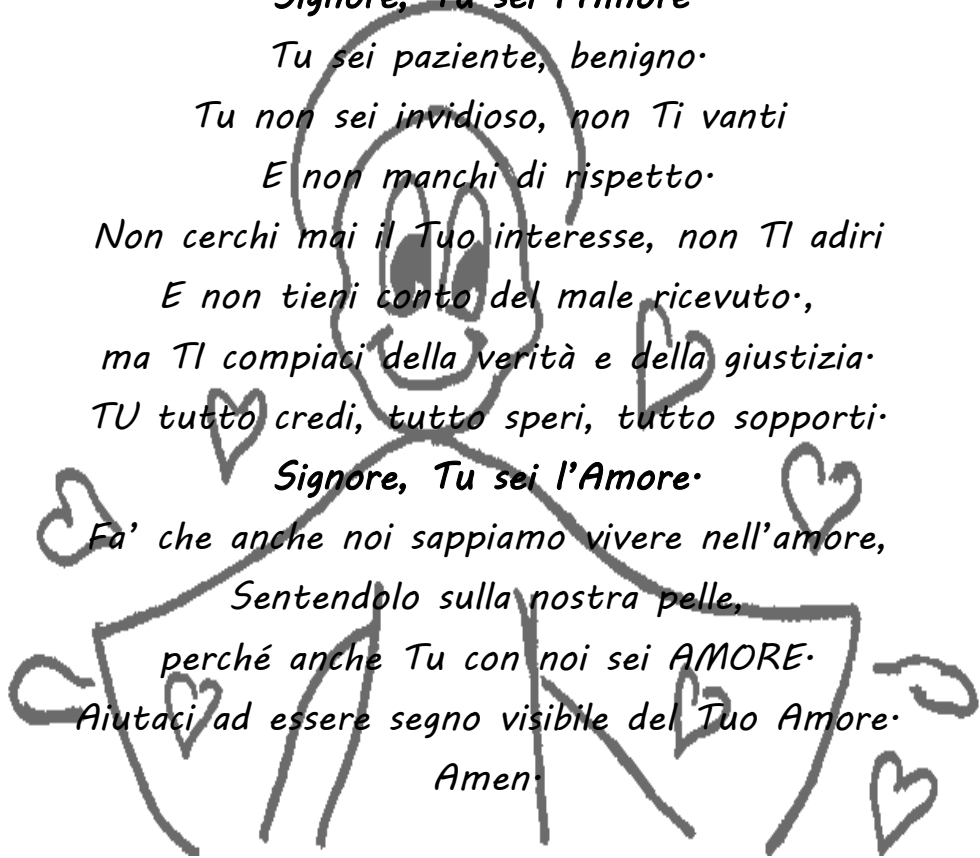 Signore, Tu sei l'Amore
Tu sei paziente, benigno.
Tu non sei invidioso, non Ti vanti
E non manchi di rispetto.
Non cerchi mai il Tuo interesse, non TI adiri
E non tieni conto del male ricevuto.,
ma TI compiaci della verità e della giustizia.
TU tutto credi, tutto speri, tutto sopporti.
Signore, Tu sei l’Amore.
Fa’ che anche noi sappiamo vivere nell’amore,
Sentendolo sulla nostra pelle,
perché anche Tu con noi sei AMORE.
Aiutaci ad essere segno visibile del Tuo Amore.
Amen.